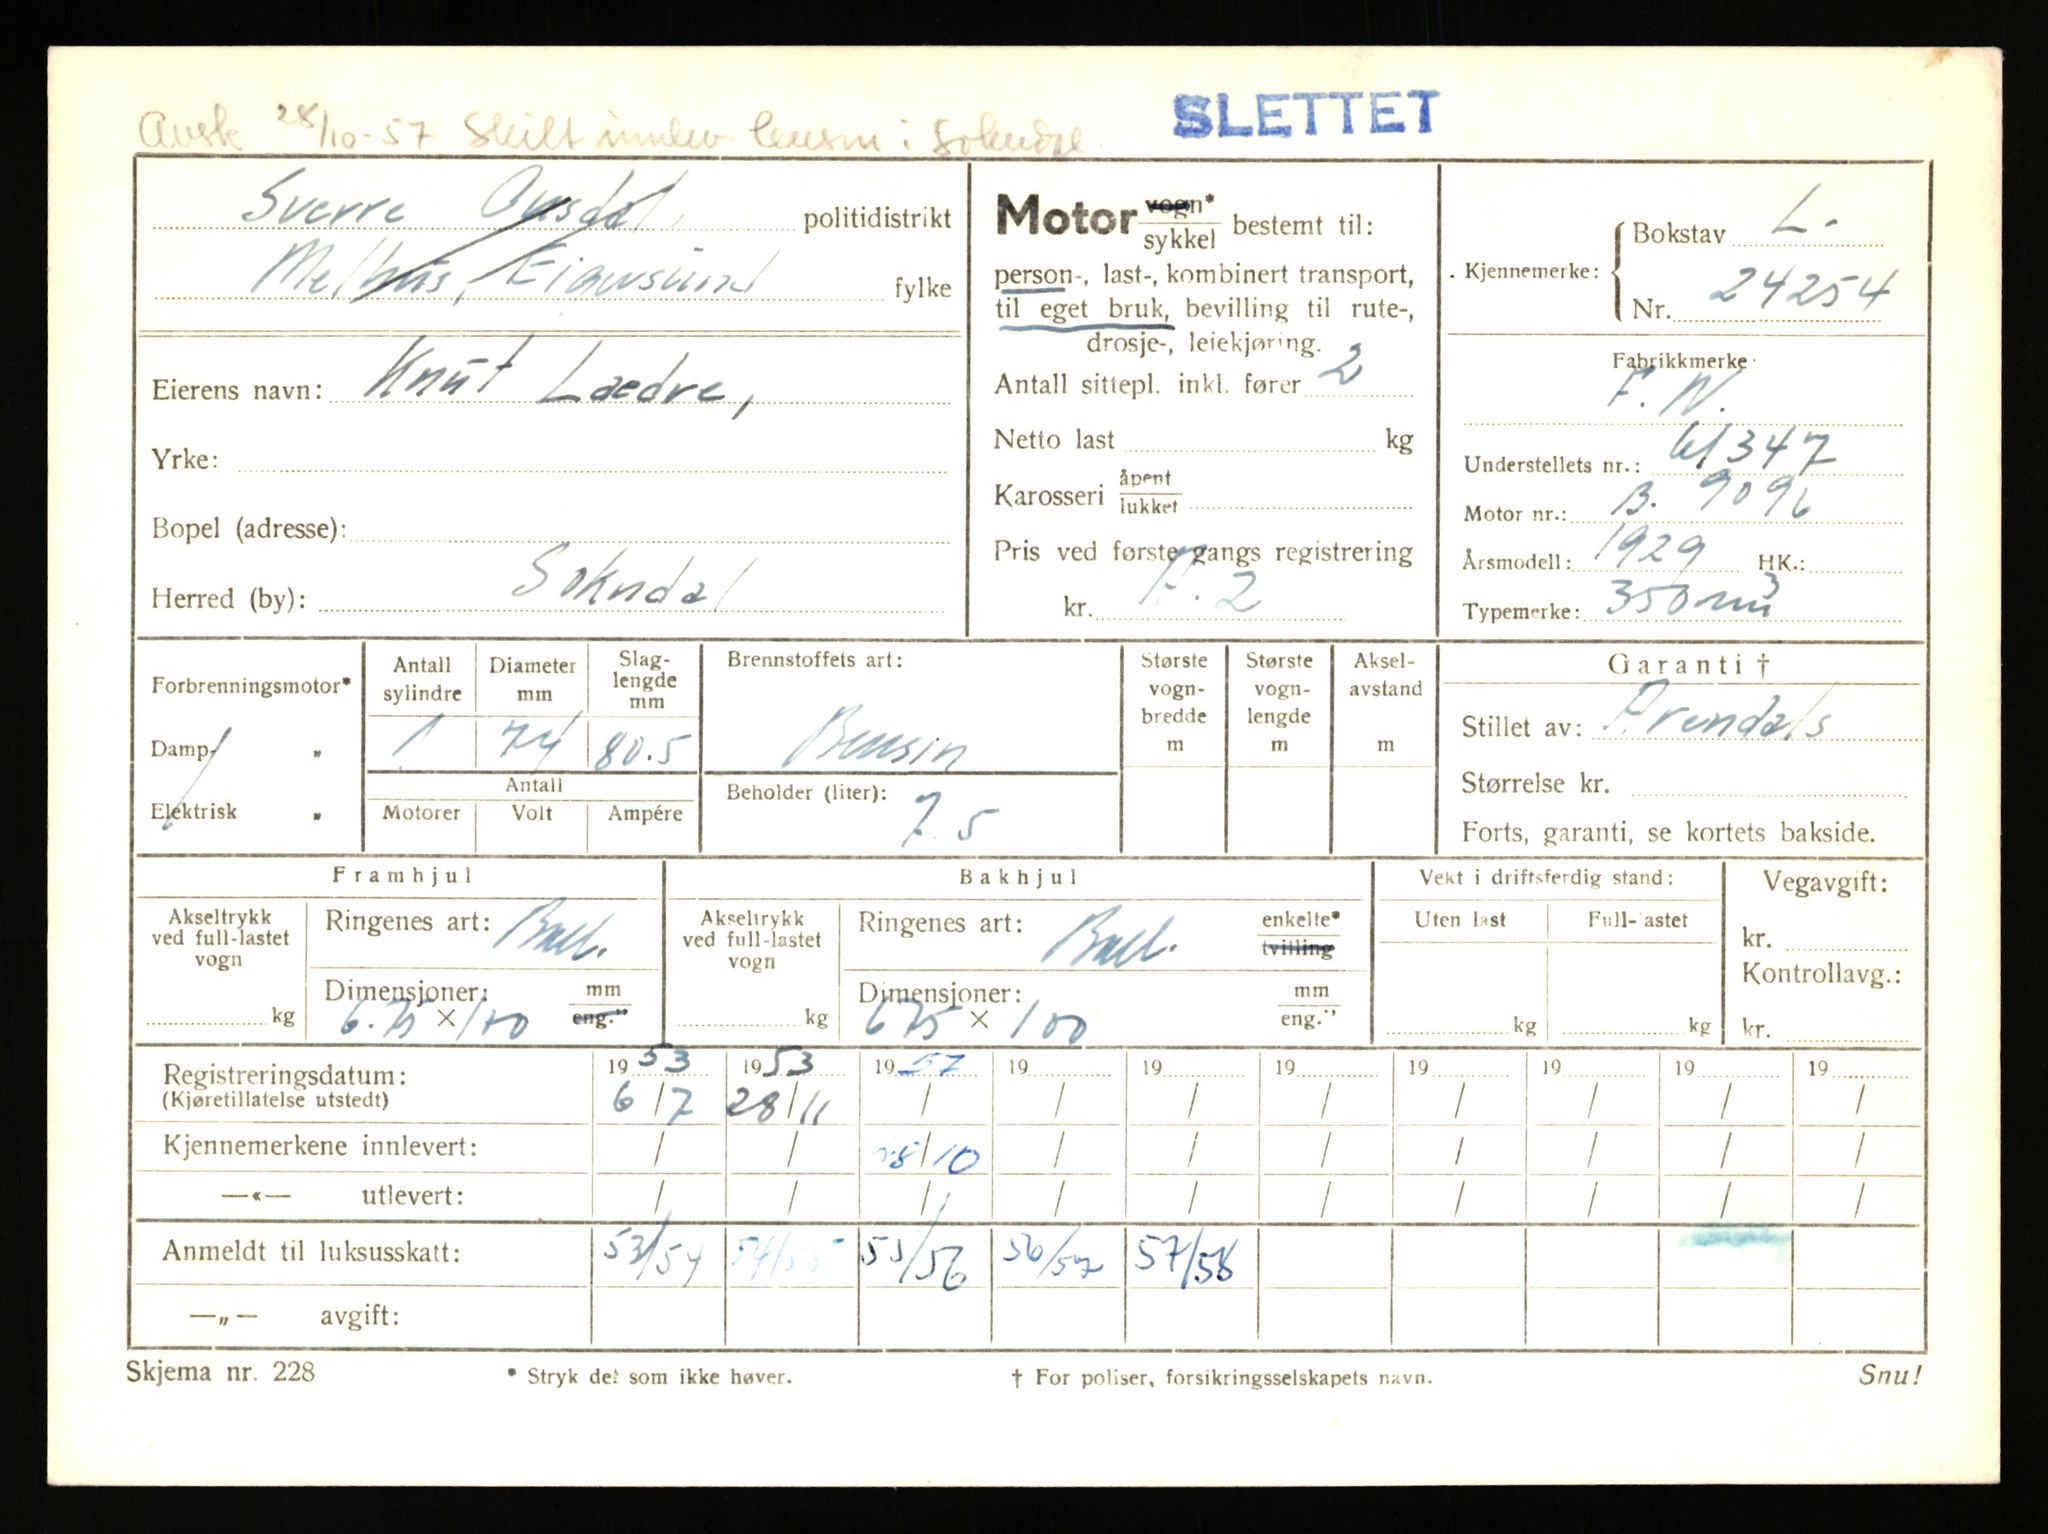 Avsk 28/10-57 Skilt innlev. lensm i Sokndal.
SLETTET
Sverre politidistrikt
Melhus, Eigersund fylke
Eierens navn: Knut Laedre,
Yrke:
Bopel (adresse):
Herred (by): Sokndal
Motor vogn* / sykkel bestemt til:
person-, last-, kombinert transport,
til eget bruk, bevilling til rute-,
drosje-, leiekjøring.
Antall sittepl. inkl. fører 2
Netto last kg
Karosseri åpent / lukket
Pris ved første gangs registrering
kr. A.2
Kjennemerke: Bokstav L.
Nr. 24254
Fabrikkmerke
F.N.
Understellets nr.: 61347
Motor nr.: B. 9096
Årsmodell: 1929 HK.:
Typemerke: 350 cm3
Forbrenningsmotor*
Damp- „
Elektrisk „
Antall sylindre 1
Diameter mm 74
Slag-lengde mm 80.5
Antall
Motorer Volt Ampére
Brennstoffets art:
Bensin
Beholder (liter): 7.5
Største vogn-bredde m
Største vogn-lengde m
Aksel-avstand m
Garanti †
Stillet av: Arendals
Størrelse kr.
Forts, garanti, se kortets bakside.
Framhjul
Akseltrykk ved full-lastet vogn kg
Ringenes art: Ball.
Dimensjoner: mm / eng."
6.75 × 100
Bakhjul
Akseltrykk ved full-lastet vogn kg
Ringenes art: Ball. enkelte* / tvilling
Dimensjoner: mm / eng."
675 × 100
Vekt i driftsferdig stand:
Uten last Full-lastet
kg kg
Vegavgift:
kr.
Kontrollavg.:
kr.
Registreringsdatum: 1953 1953 1957 19 19 19 19 19 19 19
(Kjøretillatelse utstedt) 6/7 28/11 / / / / / / / /
Kjennemerkene innlevert: / / 28/10 / / / / / / /
—«— utlevert: / / / / / / / / / /
Anmeldt til luksusskatt: 53/54 54/55 55/56 56/57 57/58
—„— avgift:
Skjema nr. 228 * Stryk det som ikke høver. † For poliser, forsikringsselskapets navn. Snu!